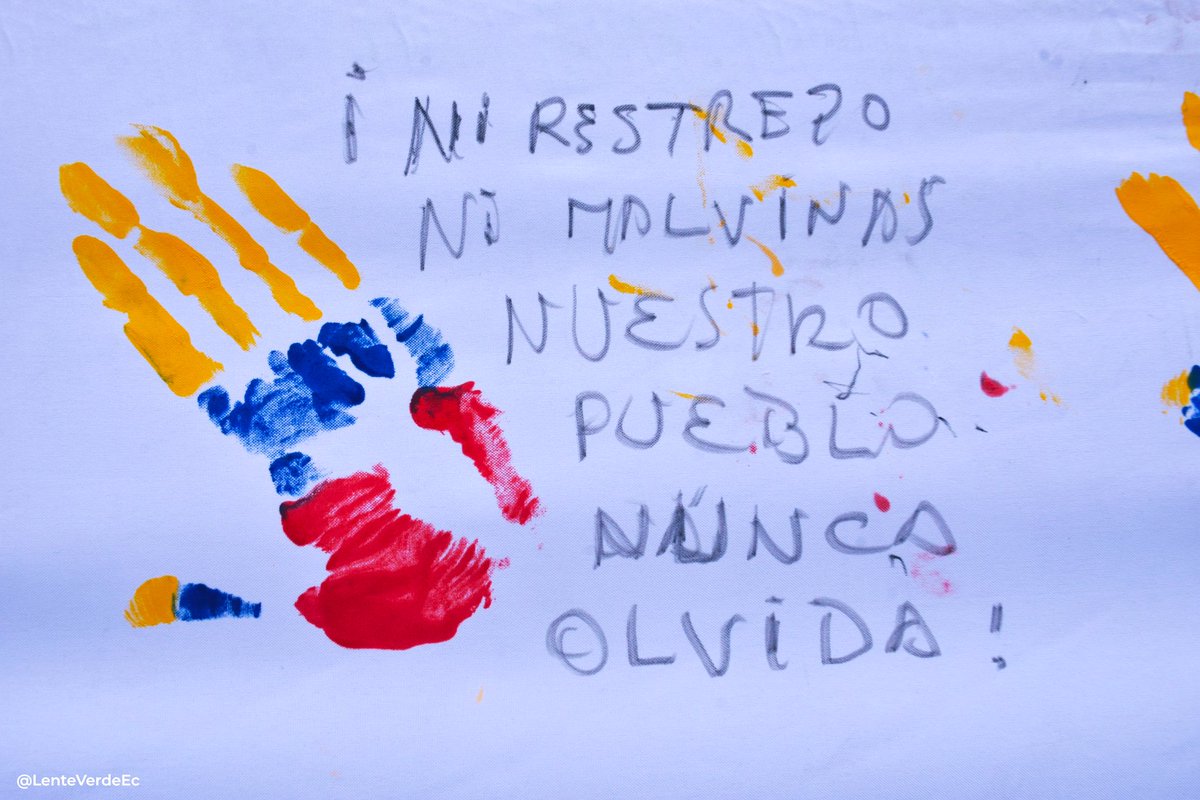 ¡NI RESTREPO
NI MALVINAS
NUESTRO
PUEBLO
NUNCA
OLVIDA!
@LenteVerdeEc